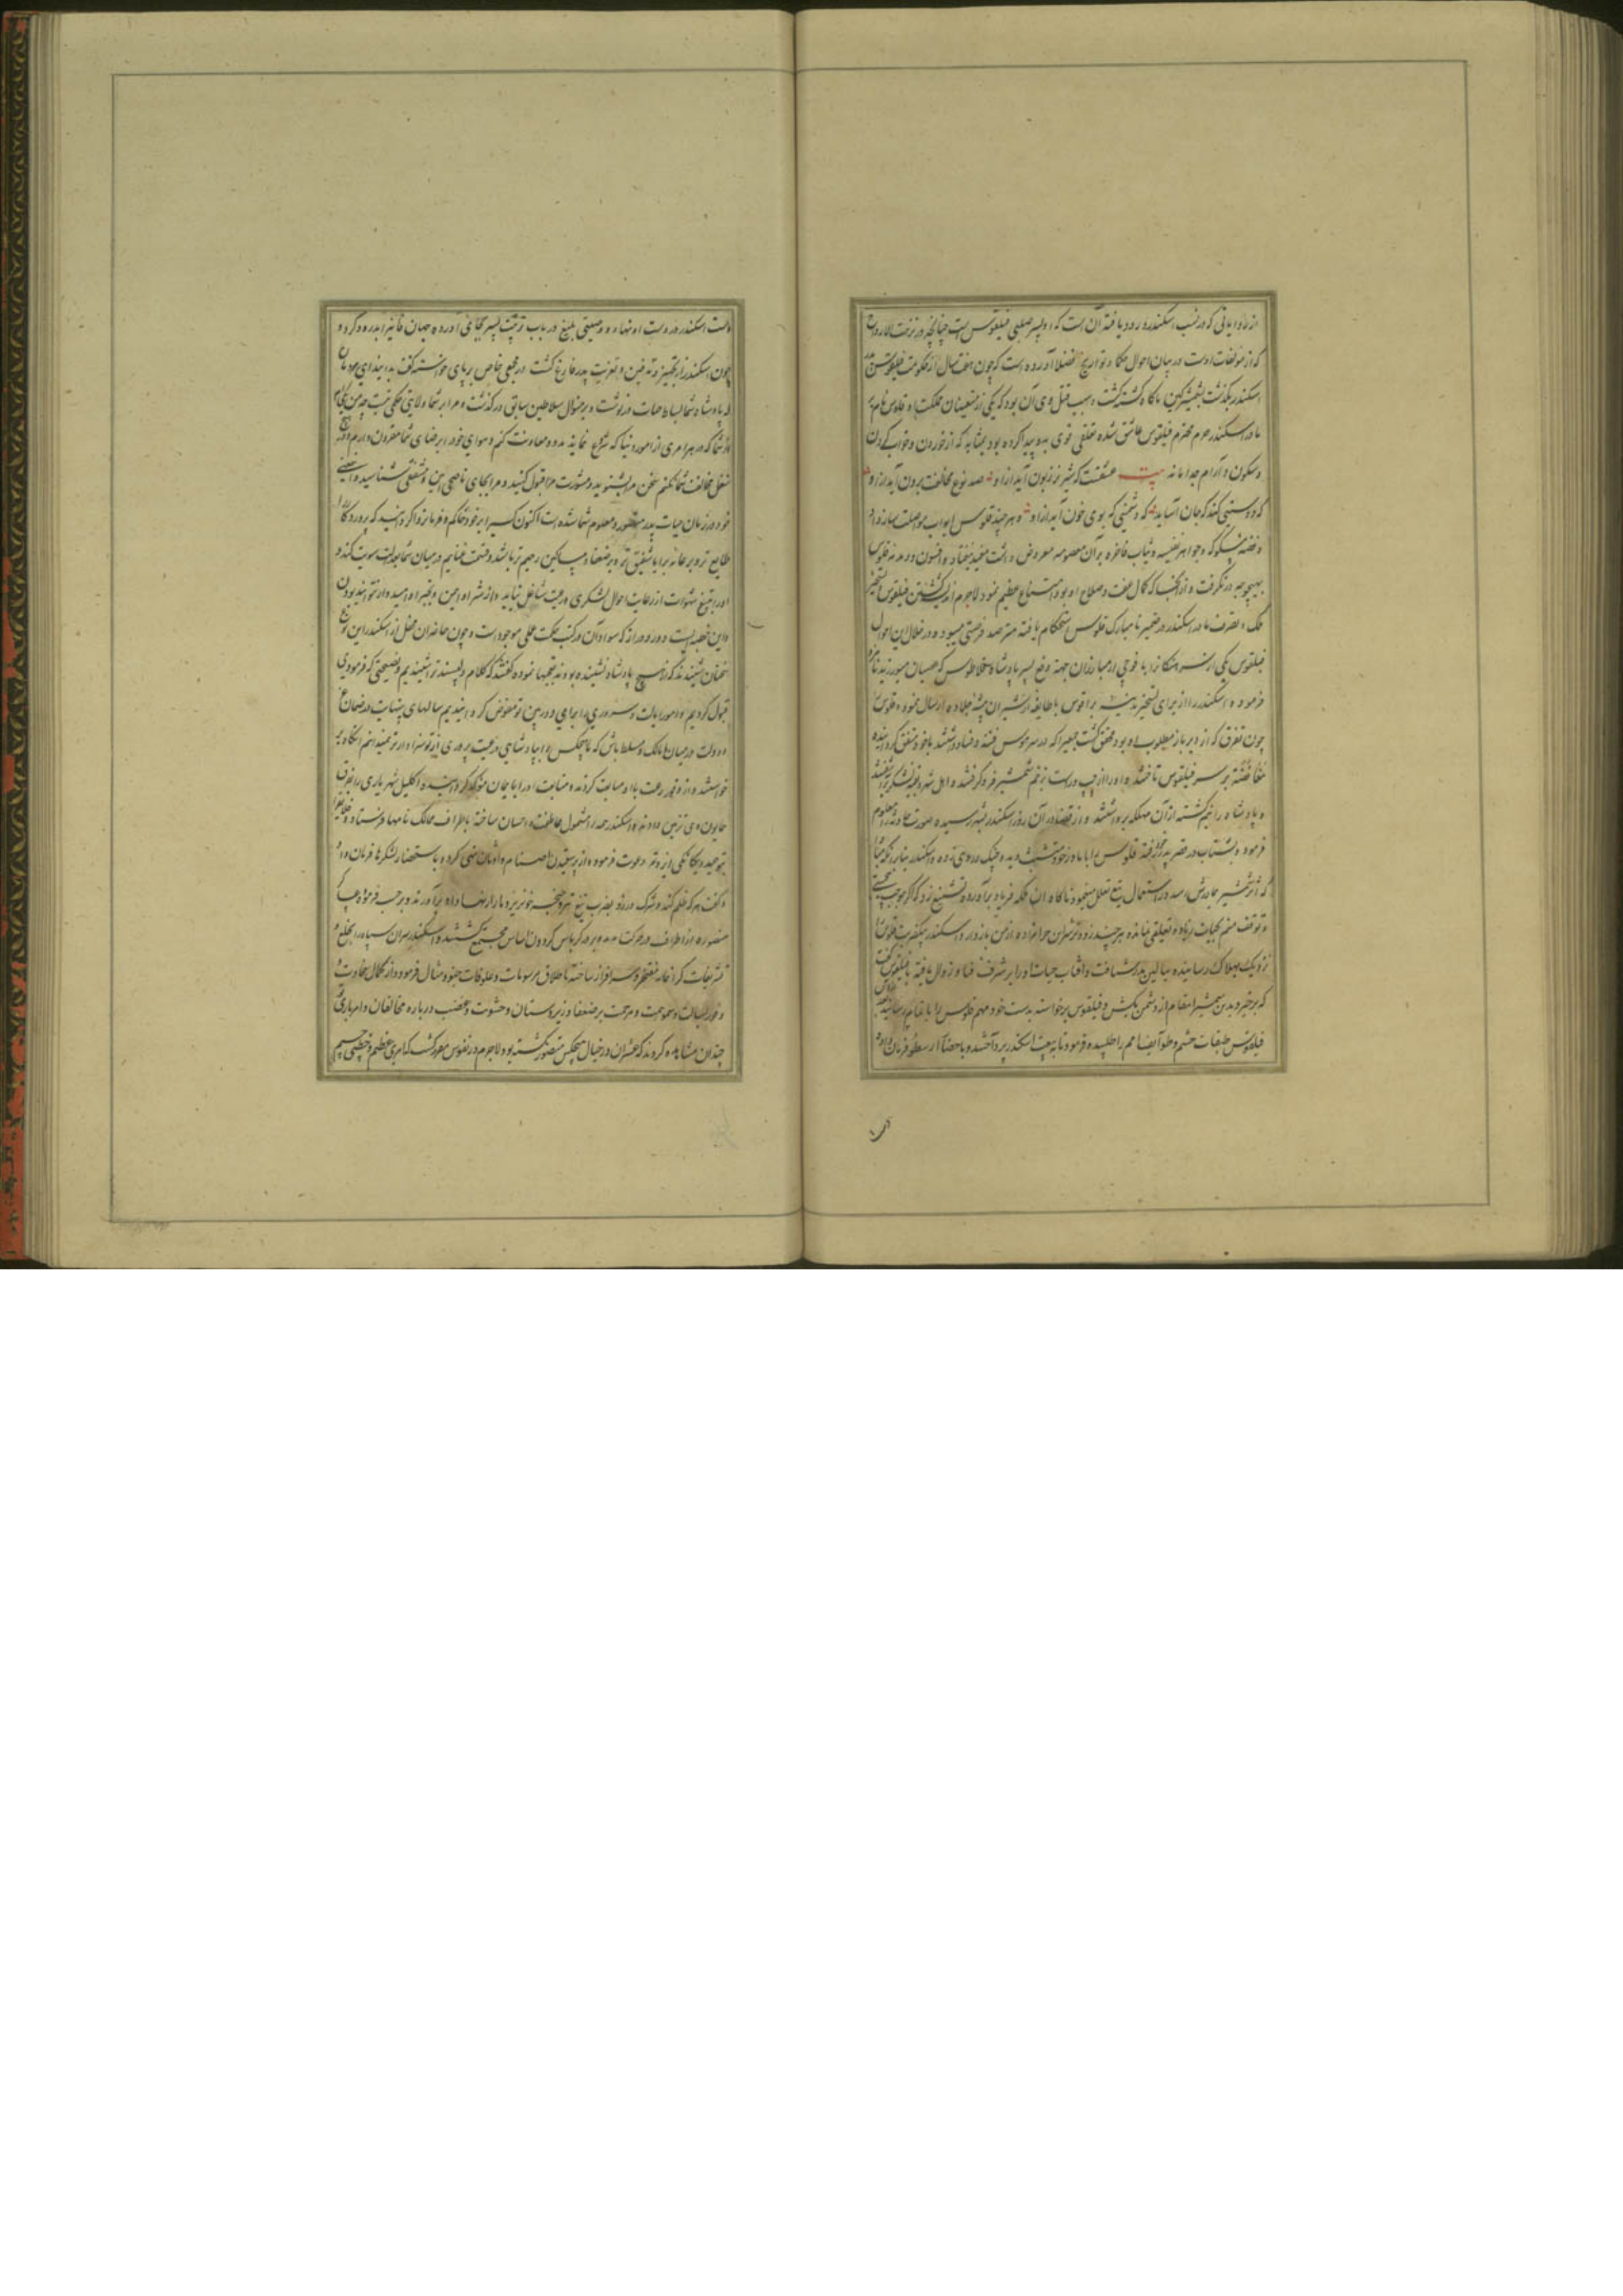 از روایاتی که در نسب اسکندر ورود یافته آن است که او پسر صلبی فیلقوس است چنانچه در نزهت الارواح
که از مؤلفات اوست در بیان احوال حکما و تواریخ فضلا آورده است که چون هفت سال از حکومت فیلقوس پدر
اسکندر بگذشت بشمشیر کین ناگاه کشته گشت و سبب قتل وی آن بود که یکی از متعینان مملکت او قلوس نام بر
مادر اسکندر حرم محترم فیلقوس عاشق شده تعلقی قوی بدو پیدا کرده بود بمثابه که از خوردن و خواب کردن
و سکون و آرام جدا ماند بیت عشقست که شیر نر زبون آید ازو صد نوع مخالفت برون آید ازو
که دوستیی کند که جان آساید که دشمنیی که بوی خون آید ازو و هر چند قلوس ابواب مواصلت
و جواهر نفیسه و ثیاب فاخره بر آن معصومه معروض داشت مفید نیفتاد و افسون و دمدمه قلوس
بهیچ وجه درنگرفت و از آنجا که کمال عفت و صلاح او بود امتناع عظیم نمود لاجرم کشتن فیلقوس و تسخیر
ملک و تصرف مادر اسکندر در ضمیر نامبارک قلوس استحکام یافته مترصد فرصتی میبود و در خلال این احوال
فیلقوس یکی از سرهنگان را با فوجی از مبارزان جهة دفع پسر پادشاه که عصیان میورزید نامزد
فرمود و اسکندر را از برای تسخیر مدینه براقوس با طایفه از شیران بیشه جلادت ارسال نمود و قلوس
چون تفرق که از دیر باز مطلوب او بود محقق گشت جمعی را که در سر هوس فتنه و فساد داشتند با خود متفق گردانیده
مغافصة بر سر فیلقوس تاختند و او را از چپ و راست بزخم شمشیر فرو گرفتند و اهل شهر و بقیه لشکر
و پادشاه را نیم کشته از آن مهلکه برداشتند و از قضا در آن روز اسکندر بشهر رسیده صورت حادثه را معلوم
فرمود و بشتاب در قصر پدر رفته قلوس را با مادر خود متشبث دیده چنگ در وی زده و اسکندر بنابر آنکه مبادا
که اثر شمشیر بمادرش رسد در استعمال تیغ تعلل مینمود ناگاه آن ملکه فریاد برآورده تشنیع زد که اگر موجب
توقف منم بحیات زیاده تعلقی نمانده شر این حرامزاده از من باز دار و اسکندر قلوس را
نزدیک بهلاک رسانیده ببالین پدر شتافت و آفتاب حیات او را بر شرف فنا و زوال یافته با فیلقوس گفت
که برخیز و بدین شمشیر انتقام از دشمن بکش و فیلقوس برخواسته بدست خود مهم قلوس را باتمام رسانید
فیلقوس طبقات حشم و طوایف امم را طلبیده فرمود تا به بیعت اسکندر پرداختند و باحضار ارسطو فرمان داده
دست اسکندر در دست او نهاد و وصیتی بلیغ در باب تربیت پسر بجای آورده جهان فانی را بدرود کرد و
چون اسکندر از تجهیز و تدفین و تعزیت پدر فارغ گشت در مجمعی خاص بر پای خواسته گفت بدانید ای مردمان
که پادشاه شما بساط حیات در نوشت و بر منوال سلاطین سابق درگذشت و مرا بر شما ولایتی و حکمی نیست
از شما که در هر امری از امور دنیا که شروع نمایند مدد و معاونت کنم و هوای خود را برضای شما مقرون دارم
مخالفت شما نکنم سخن مرا بشنوید و مشورت مرا قبول کنید و مرا بجای ناصحی امین و مشفقی شناسید
خود در زمان حیات پدر معلوم شما شده است اکنون کسی را بر خود حاکم و فرمانروا گردانید که پروردگار را
طایع تر و بر عامه برایا شفیق تر و بر ضعفا و مساکین رحیم تر باشد و قسمت غنایم در میان شما بعدالت سویت کند
او را شهوات از رعایت احوال لشکری و رعیت شاغل نیاید و از شر او ایمن و بخیر او امیدوار توانید بودن
و این خطبه ایست دور و دراز که سواد آن در کتب حکمت عملی موجود است و چون حاضران محفل از اسکندر این نوع
سخنان شنیدند که از هیچ پادشاه نشنیده بودند تعجبها نموده گفتند که کلام دلپسند ترا شنیدیم و نصیحتی که فرمودی
قبول کردیم و امور ایالت و سروری را برای دوربین تو مفوض گردانیدیم سالهای بینهایت
و دولت در میان ممالک و مسلط باش که ما هیچکس را بپادشاهی و رعیت پروری از تو سزاوارتر نمیدانیم آنگاه بر
خواستند و از روی رغبت با او مبایعت کردند و متابعت او را بایمان مؤکد گردانیده اکلیل شهریاری را بفرق
همایون وی تزیین دادند و اسکندر همه را مشمول عاطفت و احسان ساخته باطراف ممالک نامها فرستاد و خلایق را
بتوحید و یگانگی ایزد دعوت فرمود و از پرستیدن اصنام و اوثان نهی کرده باستحضار لشکرها فرمان داد
و گفت هر که ظلم کند و شرک ورزد بضرب تیغ تیز و خنجر خونریز دمار از نهاد او برآورند و بر حسب فرموده عساکر
منصوره از اطراف در حرکت آمده بر درگاه گردون اساس مجتمع گشتند و اسکندر سران سپاه را بخلع و
تشریفات گرانمایه مفتخر و سرافراز ساخته باطلاق مرسومات و علوفات جنود مثال فرمود و از کمال سخاوت و
وفور بسالت و سمو همت و مرحمت بر ضعفا و زیردستان و خشونت و غضب درباره مخالفان
چندان مشاهده کردند که عشر آن در خیال هیچکس متصور نگشته بود لاجرم در نفوس مقرر گشت که امری عظیم و خطبی جسیم